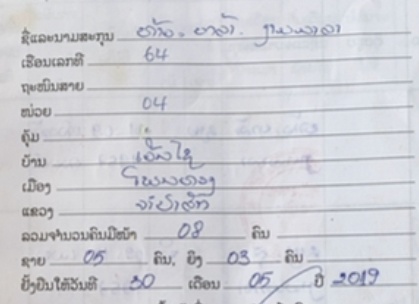 ຊື່ແລະນາມສະກຸນ ທ້າວ. ຄຳລ້າ.
ເຮືອນເລກທີ 64
ຖະໜົນສາຍ
ໜ່ວຍ 04
ຄຸ້ມ
ບ້ານ
ເມືອງ ໂພນທອງ
ແຂວງ ຈຳປາສັກ
ລວມຈຳນວນຄົນມີໜ້າ 08 ຄົນ
ຊາຍ 05 ຄົນ, ຍິງ 03 ຄົນ
ຢັ້ງຢືນໃຫ້ວັນທີ 30 ເດືອນ 05 ປີ 2019